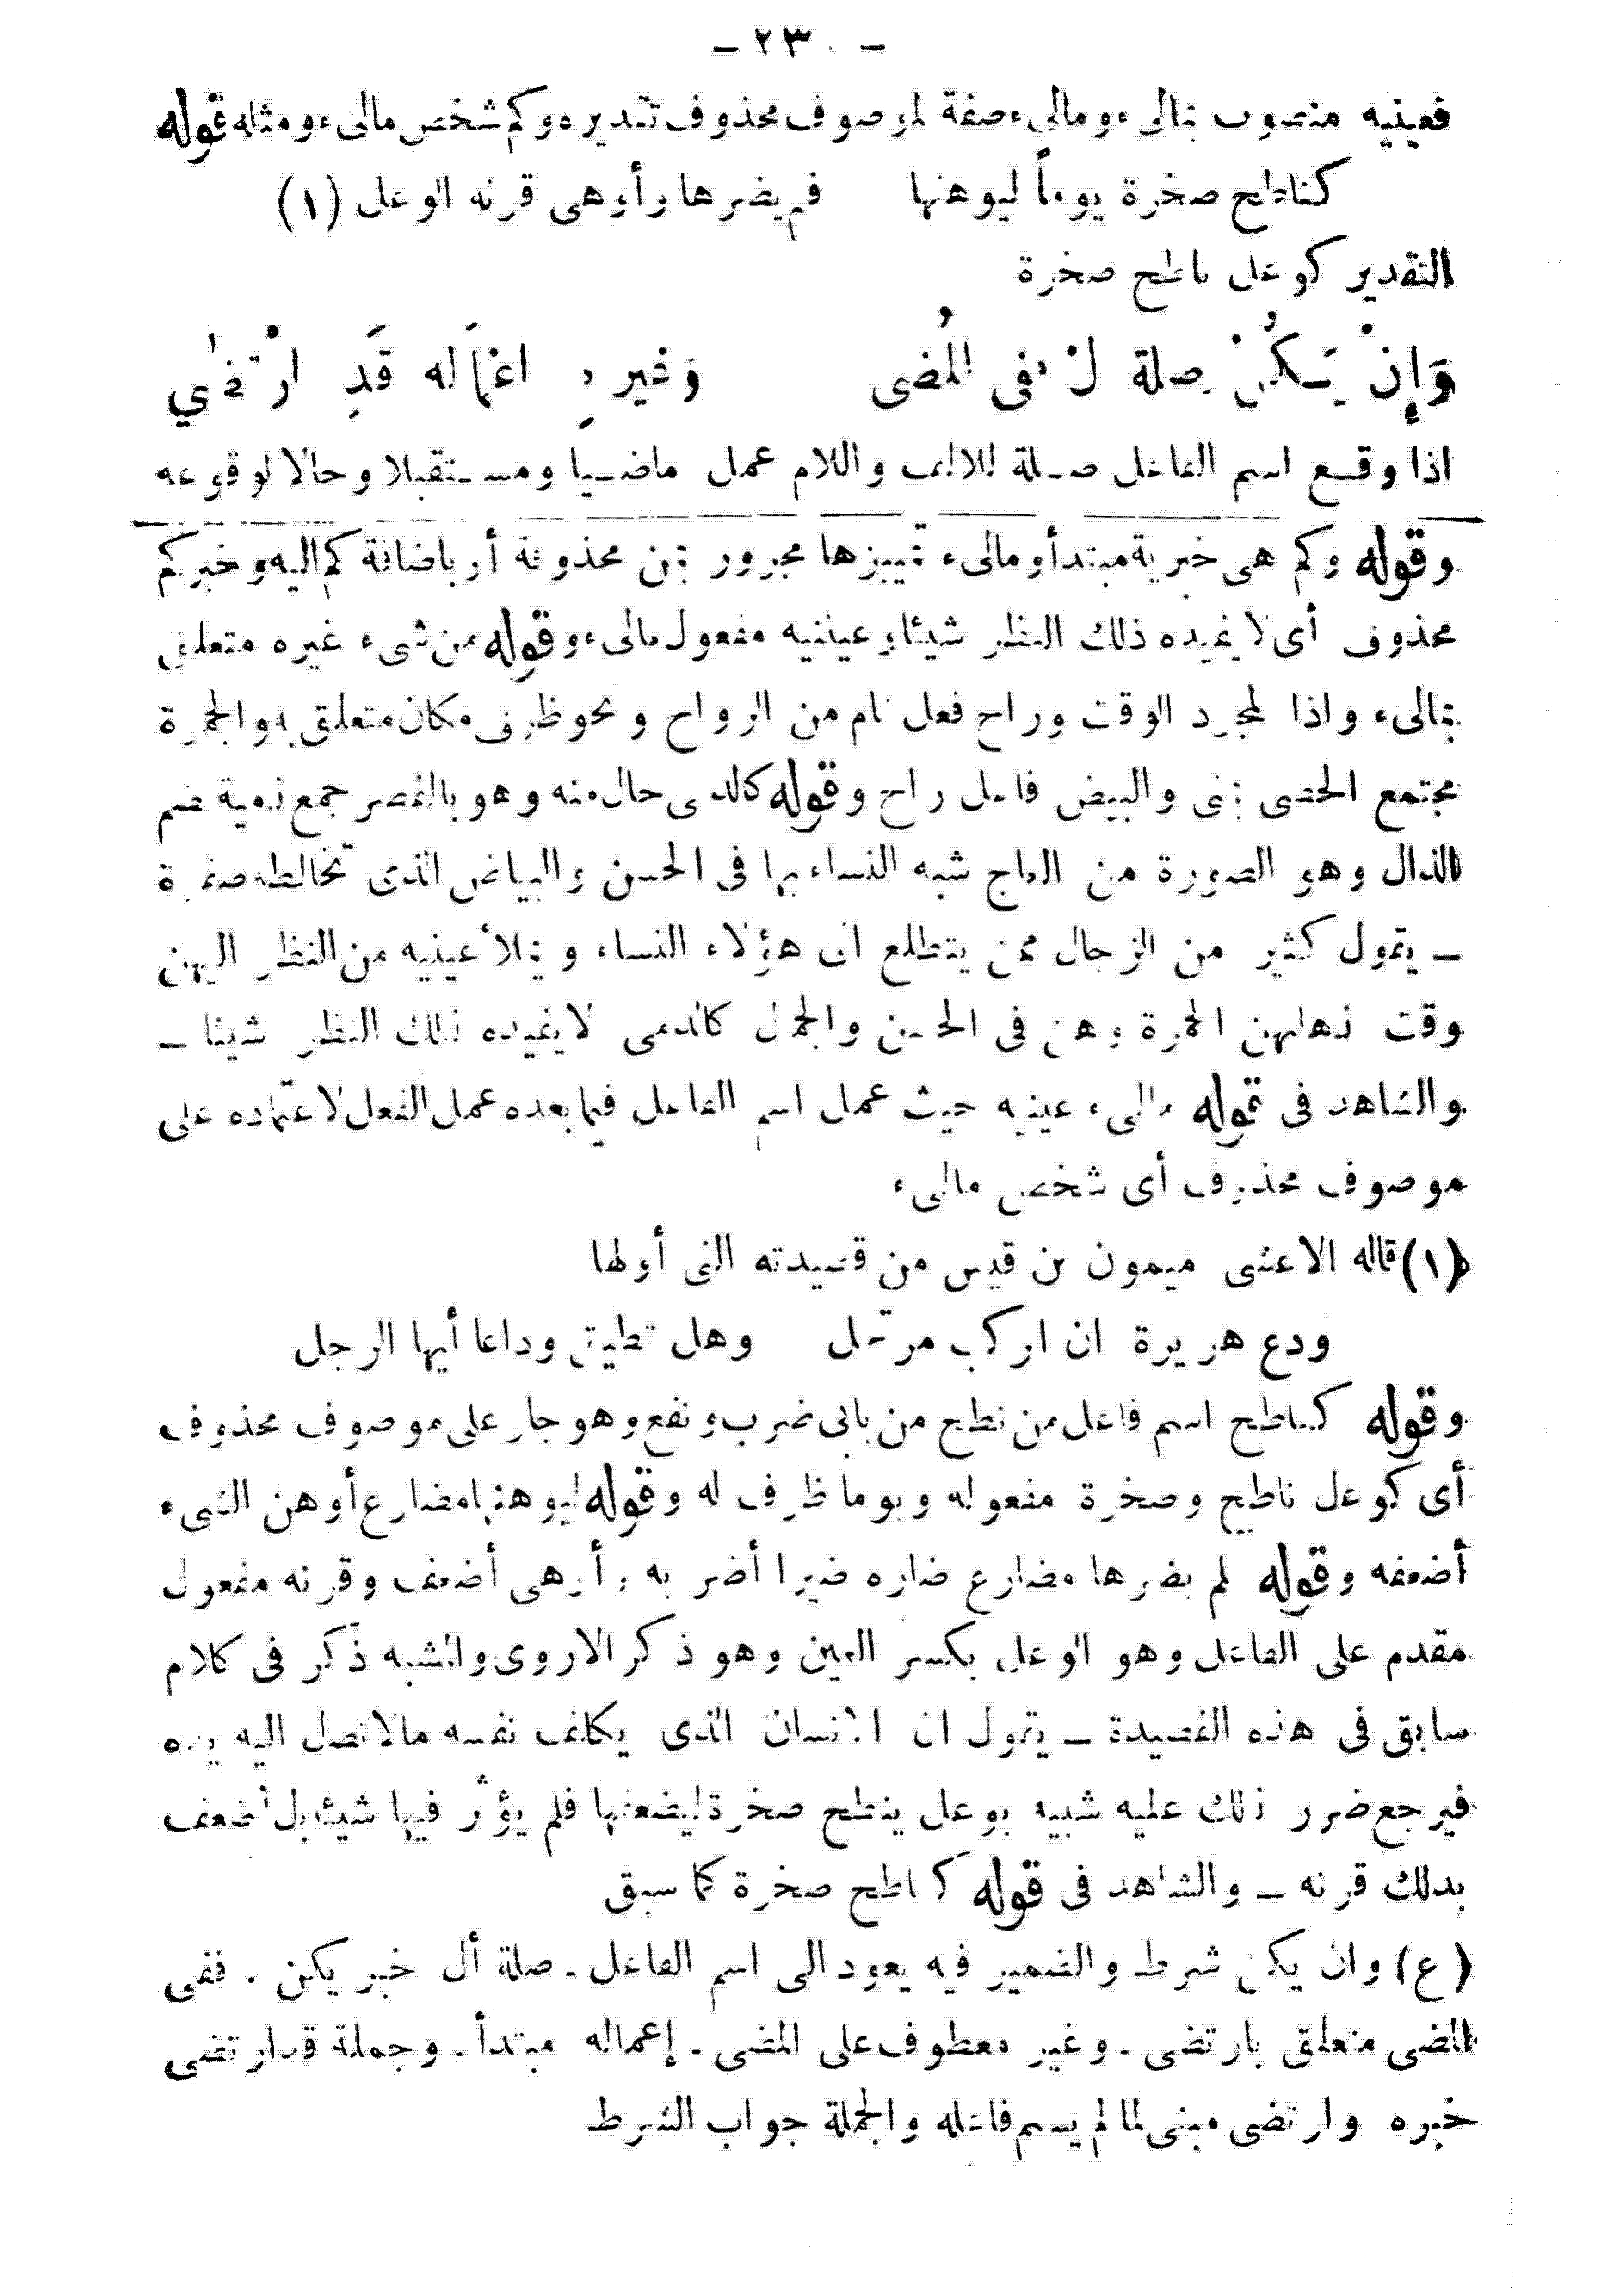 - ٢٣٠ -
فعينيه منصوب بمالىء ومالىء صفة لموصوف محذوف تقديره وكم شخص مالىء ومثله قوله
كناطح صخرة يوماً ليوهنها فلم يضرها وأوهى قرنه الوعل (١)
التقدير كوعل ناطح صخرة
وَإِنْ يَكُنْ صلة أل ففى المُضى وَغيرهِ اعْمَاله قَدِ ارْتضي
اذا وقع اسم الفاعل صلة للالف واللام عمل ماضيا ومستقبلا وحالا لوقوعه
وقوله وكم هى خبرية مبتدأ ومالىء تمييزها مجرور بمن محذوفة أو باضافة كم اليه وخبر كم
محذوف أى لا يفيده ذلك النظر شيئا وعينيه مفعول مالىء وقوله من شىء غيره متعلق
بمالىء واذا لمجرد الوقت وراح فعل تام من الرواح ونحو ظرف مكان متعلق به والجمرة
مجتمع الحصى بمنى والبيض فاعل راح وقوله كالدمى حال منه وهو بالقصر جمع دمية ضم
الدال وهو الصورة من العاج شبه النساء بها فى الحسن والبياض الذى تخالطه صفرة
ـ يقول كثير من الرجال ممن يتطلع الى هؤلاء النساء ويملأ عينيه من النظر اليهن
وقت ذهابهن الجمرة وهن فى الحسن والجمال كالدمى لا يفيده ذلك النظر شيئا ـ
والشاهد فى قوله مالىء عينيه حيث عمل اسم الفاعل فيما بعده عمل الفعل لاعتماده على
موصوف محذوف أى شخص مالىء
(١) قاله الاعشى ميمون بن قيس من قصيدته التى أولها
ودع هريرة ان الركب مرتحل وهل تطيق وداعا أيها الرجل
وقوله كناطح اسم فاعل من نطح من بابى ضرب ونفع وهو جار على موصوف محذوف
أى كوعل ناطح وصخرة مفعوله ويوما ظرف له وقوله ليوهنها مضارع أوهن الشىء
أضعفه وقوله لم يضرها مضارع ضاره ضيرا أضر به وأوهى أضعف وقرنه مفعول
مقدم على الفاعل وهو الوعل بكسر العين وهو ذكر الاروى والمشبه ذكر فى كلام
سابق فى هذه القصيدة ـ يقول ان الانسان الذى يكلف نفسه مالا تصل اليه يده
فيرجع ضرر ذلك عليه شبيه بوعل ينطح صخرة ليضعفها فلم يؤثر فيها شيئا بل أضعف
بدلك قرنه ـ والشاهد فى قوله كناطح صخرة كما سبق
(ع) وان يكن شرط والضمير فيه يعود الى اسم الفاعل . صلة أل خبر يكن . ففى
المضى متعلق بارتضى . وغير معطوف على المضى . إعماله مبتدأ . وجملة قد ارتضى
خبره وارتضى مبنى لما لم يسم فاعله والجملة جواب الشرط